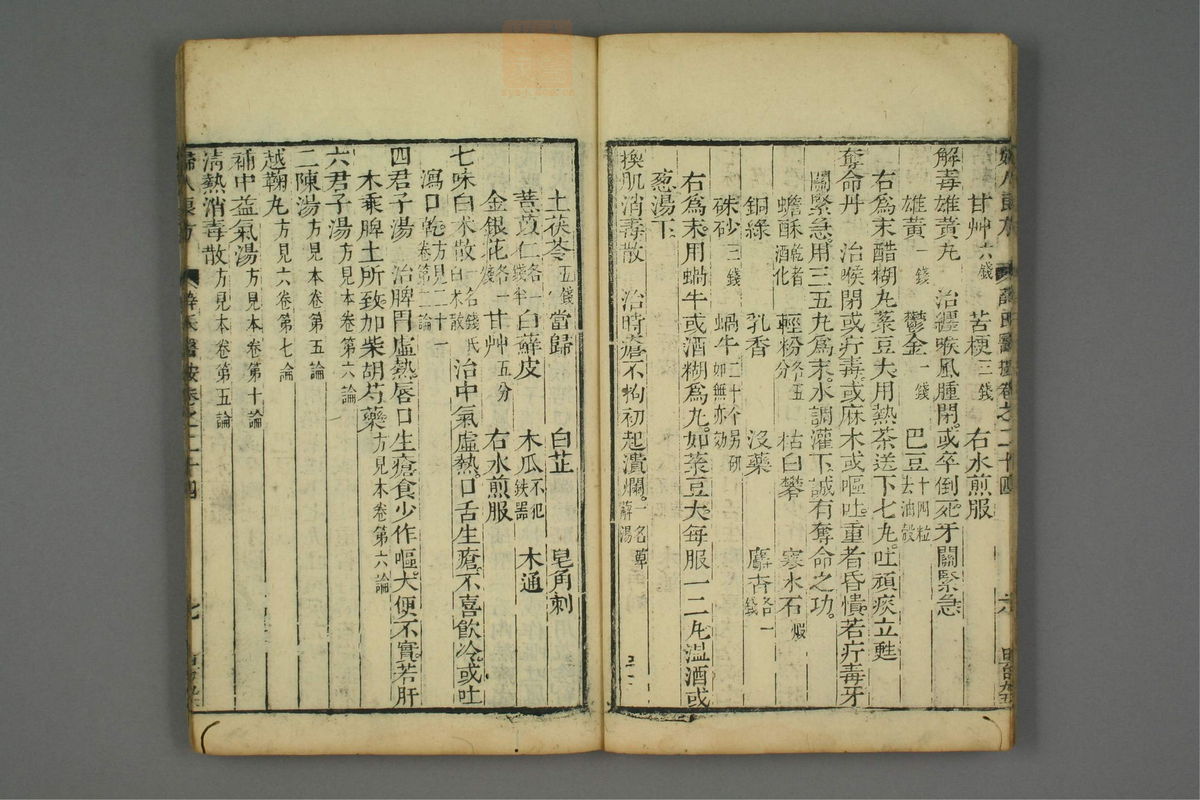 甘艸六錢　苦梗三錢　右水煎服
解毒雄黃丸　治纒喉風腫閉。或卒倒死。牙關緊急
雄黃一錢　鬱金一錢　巴豆十四粒去油殼
右為末醋糊丸菉豆大。用熱茶送下七丸。吐頑痰立甦
奪命丹　治喉閉或疔毒。或麻木或嘔吐。重者昏憒。若疔毒牙
關緊急。用三五丸為末。水調灌下。誠有奪命之功。
蟾酥乾者酒化　輕粉各五分　枯白礬　寒水石煅
銅綠　乳香　沒藥　麝香各一錢
硃砂三錢　蝸牛二十个另研如無亦効
右為末。用蝸牛或酒糊為丸。如菉豆大。每服一二丸。溫酒或
葱湯下
換肌消毒散　治時瘡不拘初起潰爛。一名萆薢湯
土茯苓五錢　當歸　白芷　皂角刺
薏苡仁各一錢半　白蘚皮　木瓜不犯鉄器　木通
金銀花各一錢　甘艸五分　右水煎服
七味白术散一名錢氏白术散　治中氣虛熱。口舌生瘡。不喜飲冷。或吐
瀉口乾方見二十一卷第二論
四君子湯　治脾胃虛熱。唇口生瘡。食少作嘔。大便不實。若肝
木乘脾土所致。加柴胡芍藥方見本卷第六論
六君子湯方見本卷第六論
二陳湯方見本卷第五論
越鞠丸方見六卷第七論
補中益氣湯方見本卷第十論
清熱消毒散方見本卷第五論
婦人良方
薛氏醫按卷之二十四
七